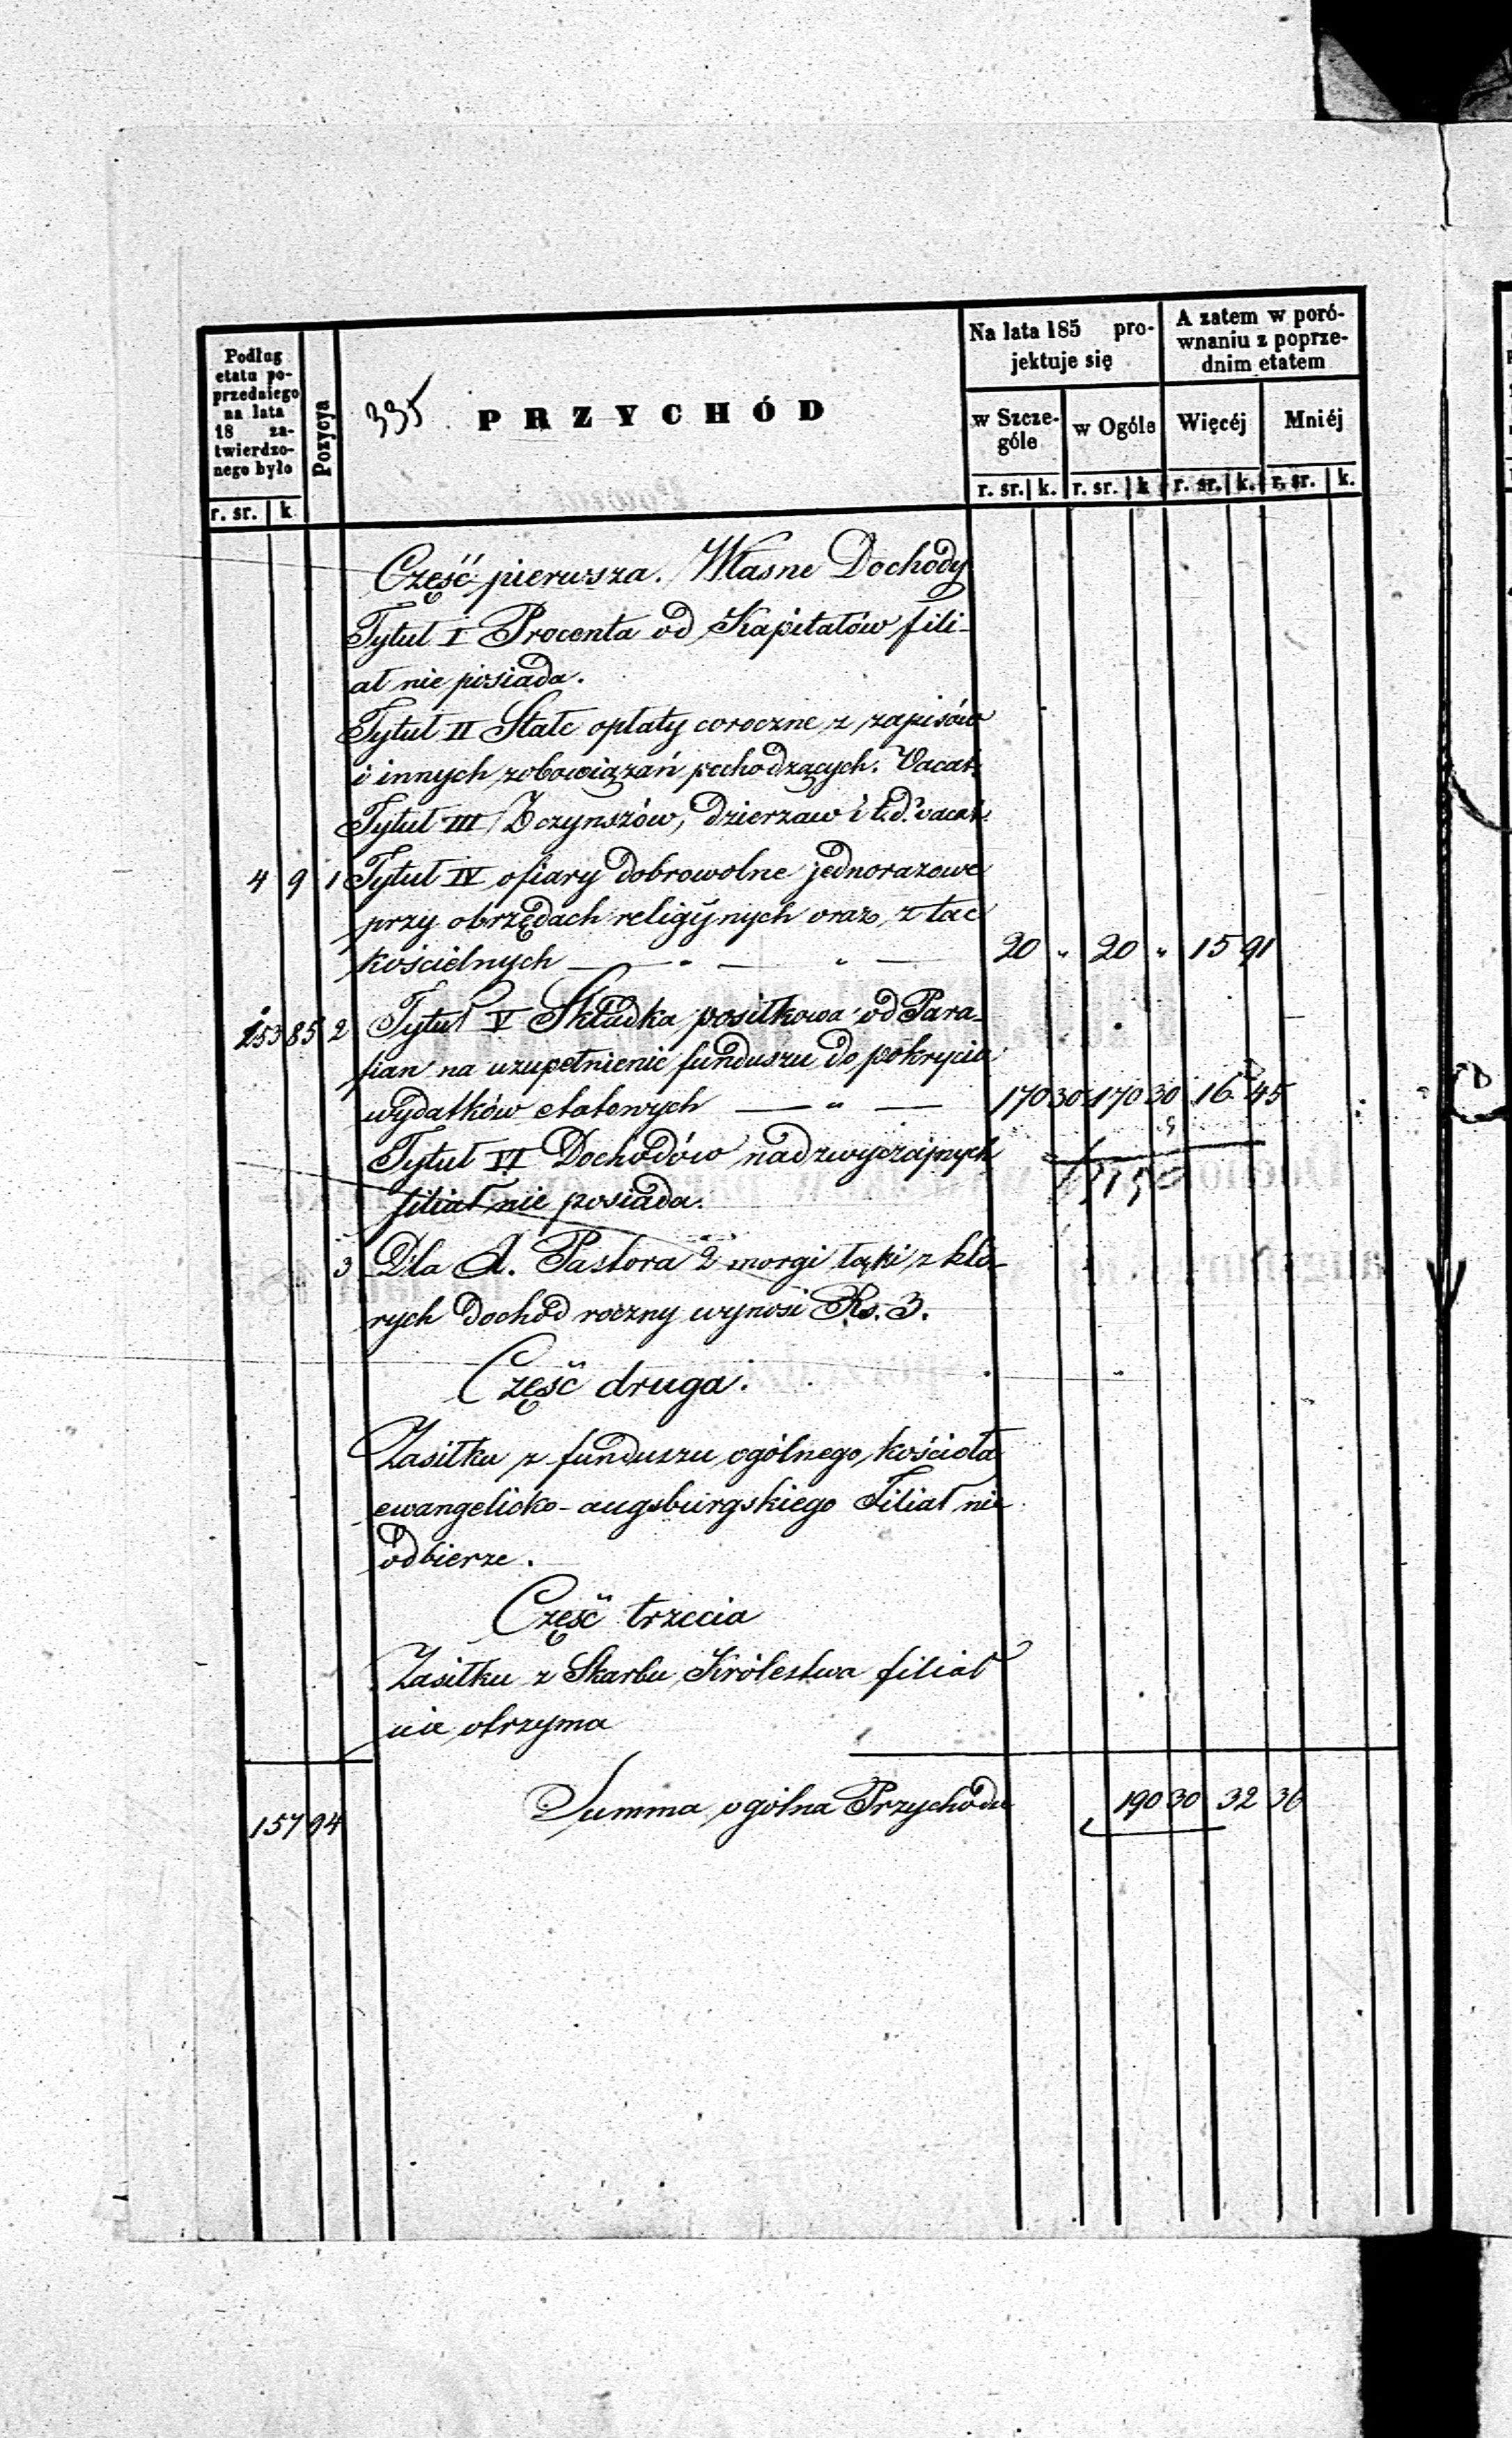 Podług
etatu po-
przedniego
na lata
18 za-
twierdzo-
nego było
r. sr. | k
Pozycya
335 PRZYCHÓD
Na lata 185 pro-
jektuje się
w Szcze-
góle
w Ogóle
r. sr. | k. r. sr. | k
A zatem w poró-
wnaniu z poprze-
dnim etatem
Więcéj Mniéj
r. sr. | k. r. sr. | k.
Część pierwsza. Własne Dochody
Tytuł I Procenta od Kapitałów fili-
ał nie posiada.
Tytuł II Stałe opłaty coroczne z zapisów
i innych zobowiązań pochodzących. Vacat.
Tytuł III Z czynszów, dzierzaw i t.d. vacat
4 9 1 Tytuł IV ofiary dobrowolne jednorazowe
przy obrzędach religijnych oraz z tac
kościelnych — " — " — 20 " 20 " 15 91
153 85 2 Tytuł V Składka posiłkowa od Para-
fian na uzupełnienie funduszu do pokrycia
wydatków etatowych — " — 170 30 170 30 16 45
Tytuł VI Dochodów nadzwyczajnych
filiał nie posiada.
3 Dla X. Pastora 2 morgi łąki z któ-
rych dochód roczny wynosi Rs. 3.
Część druga.
Zasiłku z funduszu ogólnego kościoła
ewangelicko-augsburgskiego Filiał nie
odbierze.
Część trzecia
Zasiłku z Skarbu Królestwa filiał
nie otrzyma
157 94 Summa ogólna Przychodu 190 30 32 36